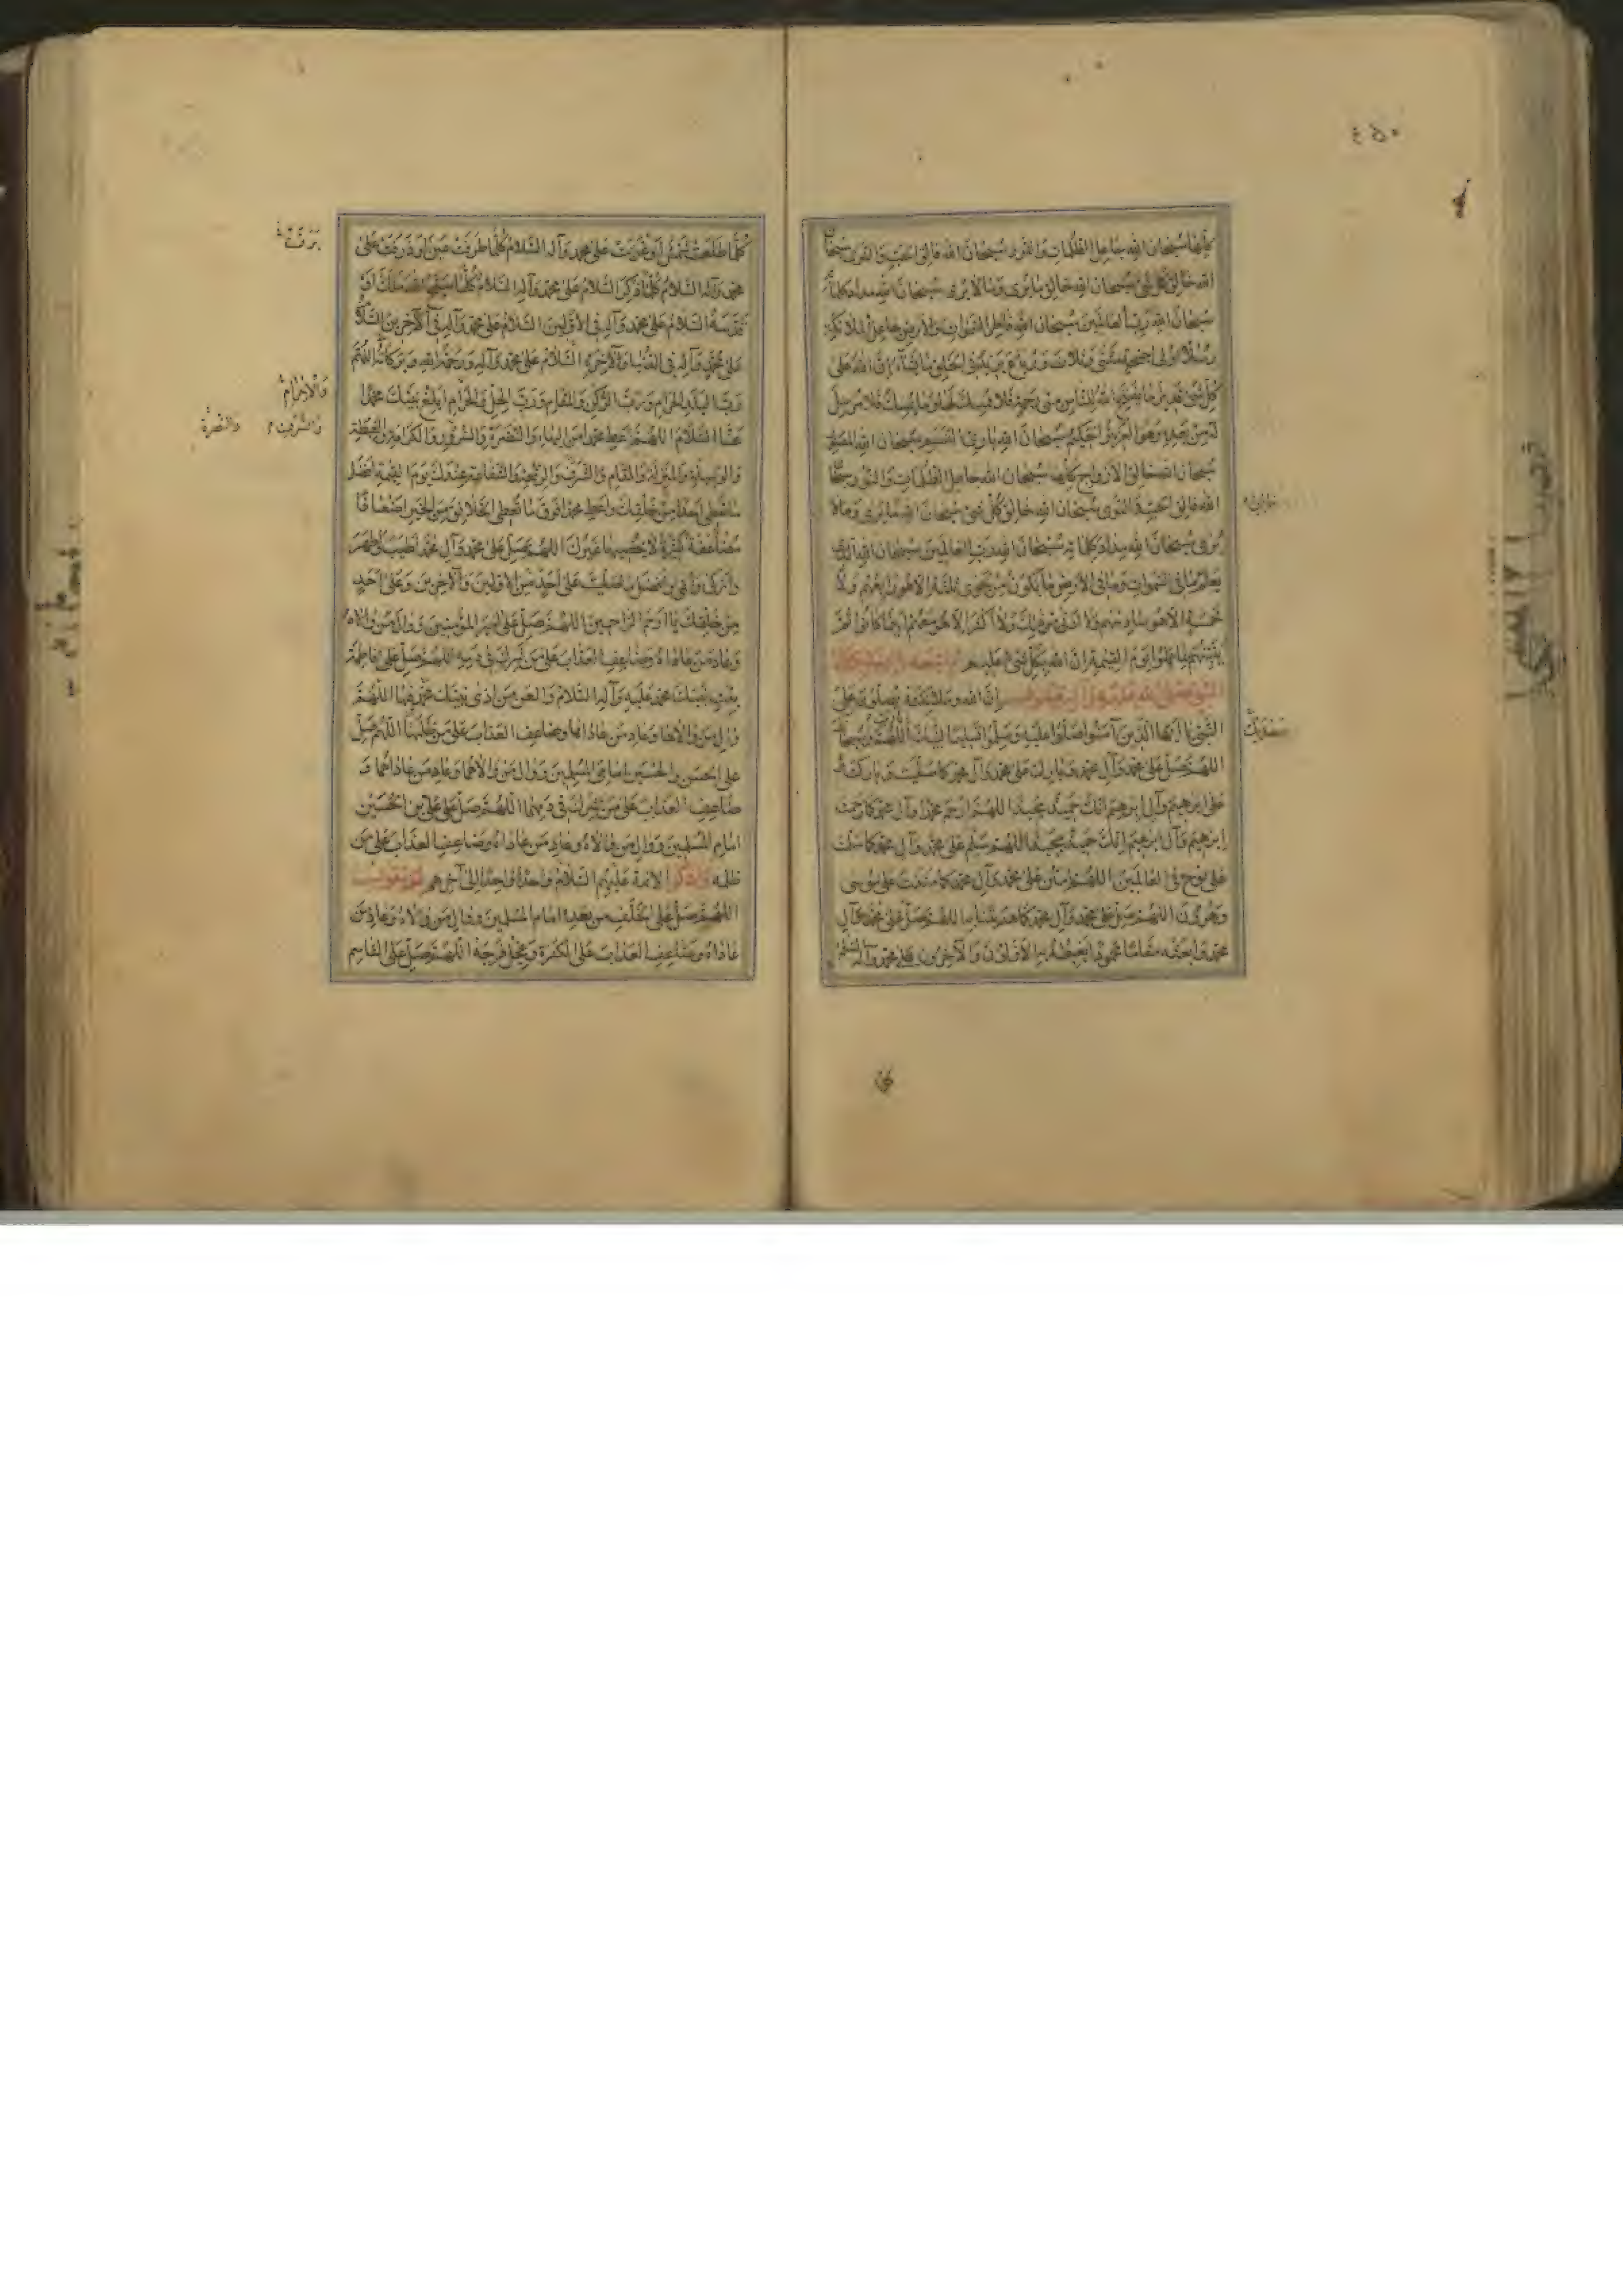 كلها سبحان الله جاعل الظلمات والنور سبحان الله فالق الحب والنوى سبحان
الله خالق كل شئ سبحان الله خالق ما يرى وما لا يرى سبحان الله مداد كلماته
سبحان الله رب العالمين سبحان الله فاطر السموات والارض جاعل الملائكة
رسلا اولى اجنحة مثنى وثلاث ورباع يزيد فى الخلق ما يشآء ان الله على
كل شئ قدير ما يفتح الله للناس من رحمة فلا ممسك لها وما يمسك فلا مرسل
له من بعده وهو العزيز الحكيم سبحان الله بارئ النسم سبحان الله المصور
سبحان الله خالق الازواج كلها سبحان الله جاعل الظلمات والنور سبحان
الله فالق الحب والنوى سبحان الله خالق كل شئ سبحان الله ما يرى وما لا
يرى سبحان الله مداد كلماته سبحان الله رب العالمين سبحان الله الذى
يعلم ما فى السموات وما فى الارض ما يكون من نجوى ثلثة الا هو رابعهم ولا
خمسة الا هو سادسهم ولا ادنى من ذلك ولا اكثر الا هو معهم اينما كانوا ثم
ينبئهم بما عملوا يوم القيمة ان الله بكل شئ عليم
النبى صلى الله عليه وآله ان الله وملئكته يصلون على
النبى يا ايها الذين آمنوا صلوا عليه وسلموا تسليما لبيك اللهم
اللهم صل على محمد وآل محمد وبارك على محمد وآل محمد كما صليت وباركت
على ابرهيم وآل ابرهيم انك حميد مجيد اللهم ارحم محمدا وآل محمد كما رحمت
ابرهيم وآل ابرهيم انك حميد مجيد اللهم سلم على محمد وآل محمد كما سلمت
على نوح فى العالمين اللهم امنن على محمد وآل محمد كما مننت على موسى
وهرون اللهم صل على محمد وآل محمد كما هديتنا به اللهم صل على محمد وآل
محمد وابعثه مقاما محمودا يغبطه به الاولون والآخرون على محمد وآله السلام
كلما طلعت شمس او غربت على محمد وآله السلام كلما طرفت عين او ذرفت على
محمد وآله السلام كلما ذكر السلام على محمد وآله السلام كلما سبح الله ملك او
قدسه السلام على محمد وآله فى الاولين السلام على محمد وآله فى الآخرين السلام
على محمد وآله فى الدنيا والآخرة السلام على محمد وآله ورحمة الله وبركاته اللهم
رب البلد الحرام ورب الركن والمقام ورب الحل والحرام ابلغ نبيك محمدا
عنا السلام اللهم اعط محمدا من البهاء والنضرة والسرور والكرامة والغبطة
والوسيلة والمنزلة والمقام والشرف والرفعة والشفاعة عندك يوم القيمة افضل
ما تعطى احدا من خلقك واعط محمدا فوق ما تعطى الخلائق من الخير اضعافا
مضاعفة كثيرة لا يحصيها غيرك اللهم صل على محمد وآل محمد اطيب واطهر
وازكى وانمى وافضل ما صليت على احد من الاولين والآخرين وعلى احد
من خلقك يا ارحم الراحمين اللهم صل على امير المؤمنين ووال من والاه
وعاد من عاداه وضاعف العذاب على من شرك فى دمه اللهم صل على فاطمة
بنت نبيك محمد عليه وآله السلام والعن من اذى نبيك محمد فيها اللهم
وال من والاها وعاد من عاداها وضاعف العذاب على من ظلمها اللهم صل
على الحسن والحسين امامى المسلمين ووال من والاهما وعاد من عاداهما و
ضاعف العذاب على من شرك فى دمهما اللهم صل على على بن الحسين
امام المسلمين ووال من والاه وعاد من عاداه وضاعف العذاب على من
ظلمه واذكر الائمة عليهم السلام واحدا واحدا الى آخرهم ثم تقول
اللهم صل على الخلف من بعده امام المسلمين ووال من والاه وعاد من
عاداه وضاعف العذاب على الكفرة وعجل فرجه اللهم صل على القاسم